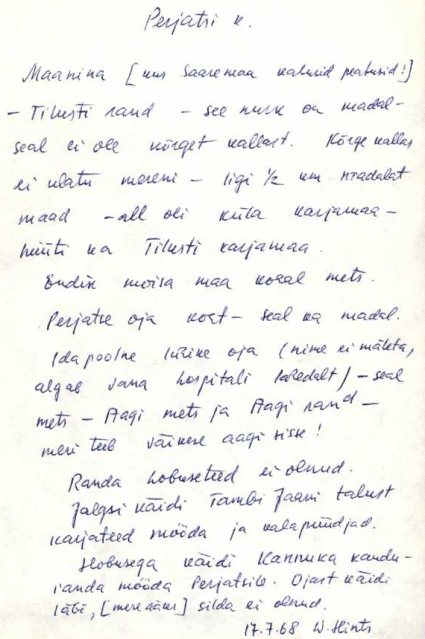 Perjatsi k.
Maanina [kus Saaremaa kalurid peatusid!]
– Tilusti rand – see nurk on madal –
seal ei ole kõrget kallast. Kõrge kallas
ei ulatu mereni – ligi ½ km madalat
maad – all oli küla karjamaa –
hüüti ka Tilusti karjamaa.
Endise mõisa maa kogal mets.
Perjatse oja koht – seal ka madal.
Idapoolne lühike oja (nime ei mäleta,
algab vana hospitali lähedalt) – seal
mets – Aagi mets ja Aagi rand –
meri teeb väikese aagi sisse!
Randa hobuseteed ei olnud.
Jalgsi käidi Tambi Jaani talust
karjateed mööda ja kalapüüdjad.
Hobusega käidi Kannuka kandu-
randa mööda Perjatsile. Ojast käidi
läbi, [mere ääres] silda ei olnud.
17.7.68 W. Hints